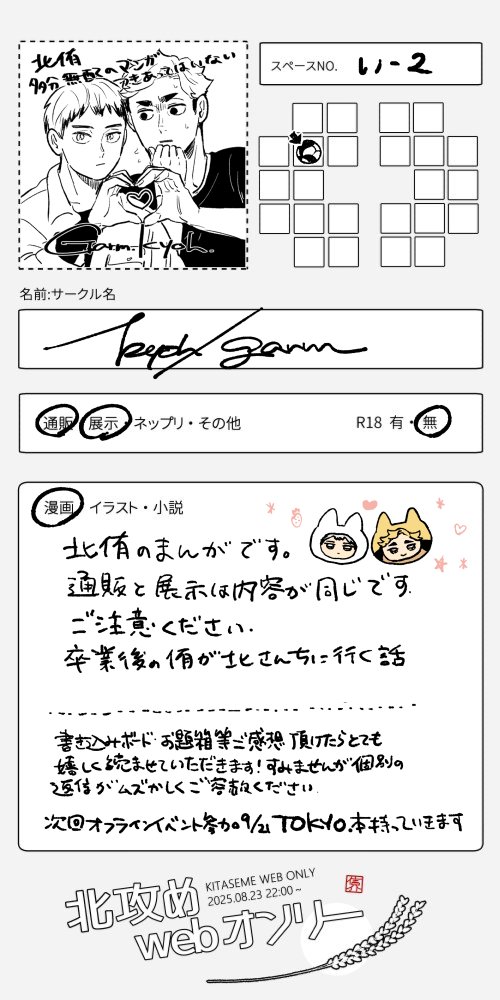 北侑
多分無配のマンガ
つきあってはいない
Garm.kyoh.
スペースNO. い-2
名前:サークル名
kyoh/garm
通販・展示・ネップリ・その他
R18 有・無
漫画・イラスト・小説
北侑のまんがです。
通販と展示は内容が同じです.
ご注意ください.
卒業後の侑が北さんちに行く話
書き込みボード・お題箱等ご感想頂けたらとても
嬉しく読ませていただきます!すみませんが個別の
返信がムズかしくご容赦ください.
次回オフラインイベント参加。9/21 TOKYO.本持っていきます
北攻め
KITASEME WEB ONLY
2025.08.23 22:00~
webオンリー